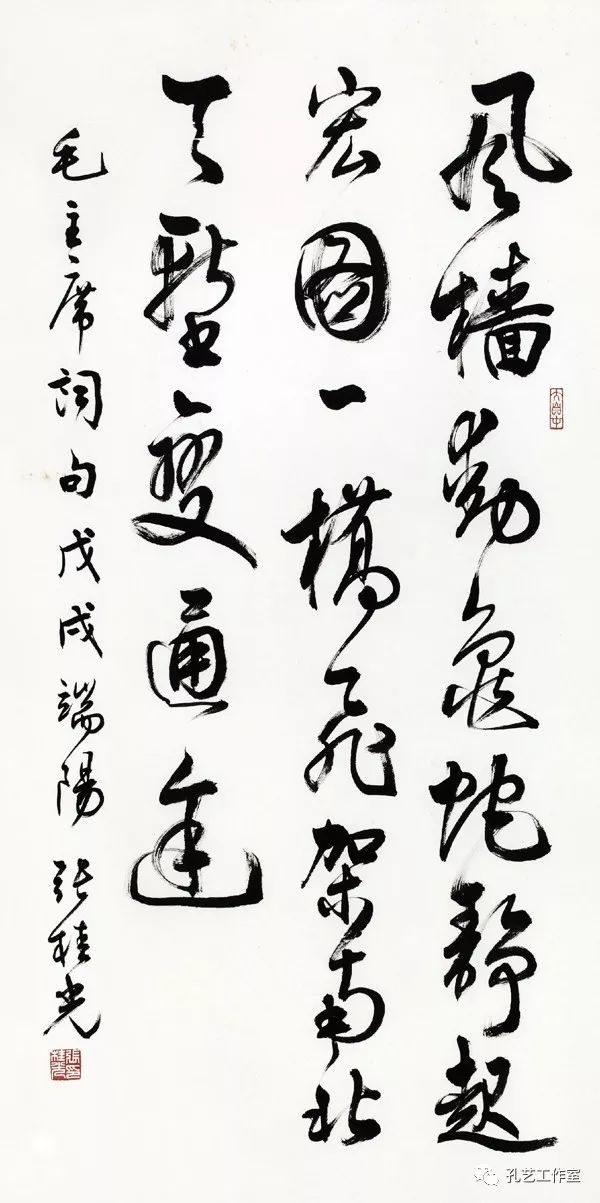 風檣動龜蛇靜起
宏圖一橋飛架南北
天塹變通途
毛主席詞句戊戌端陽 張桂光
孔艺工作室